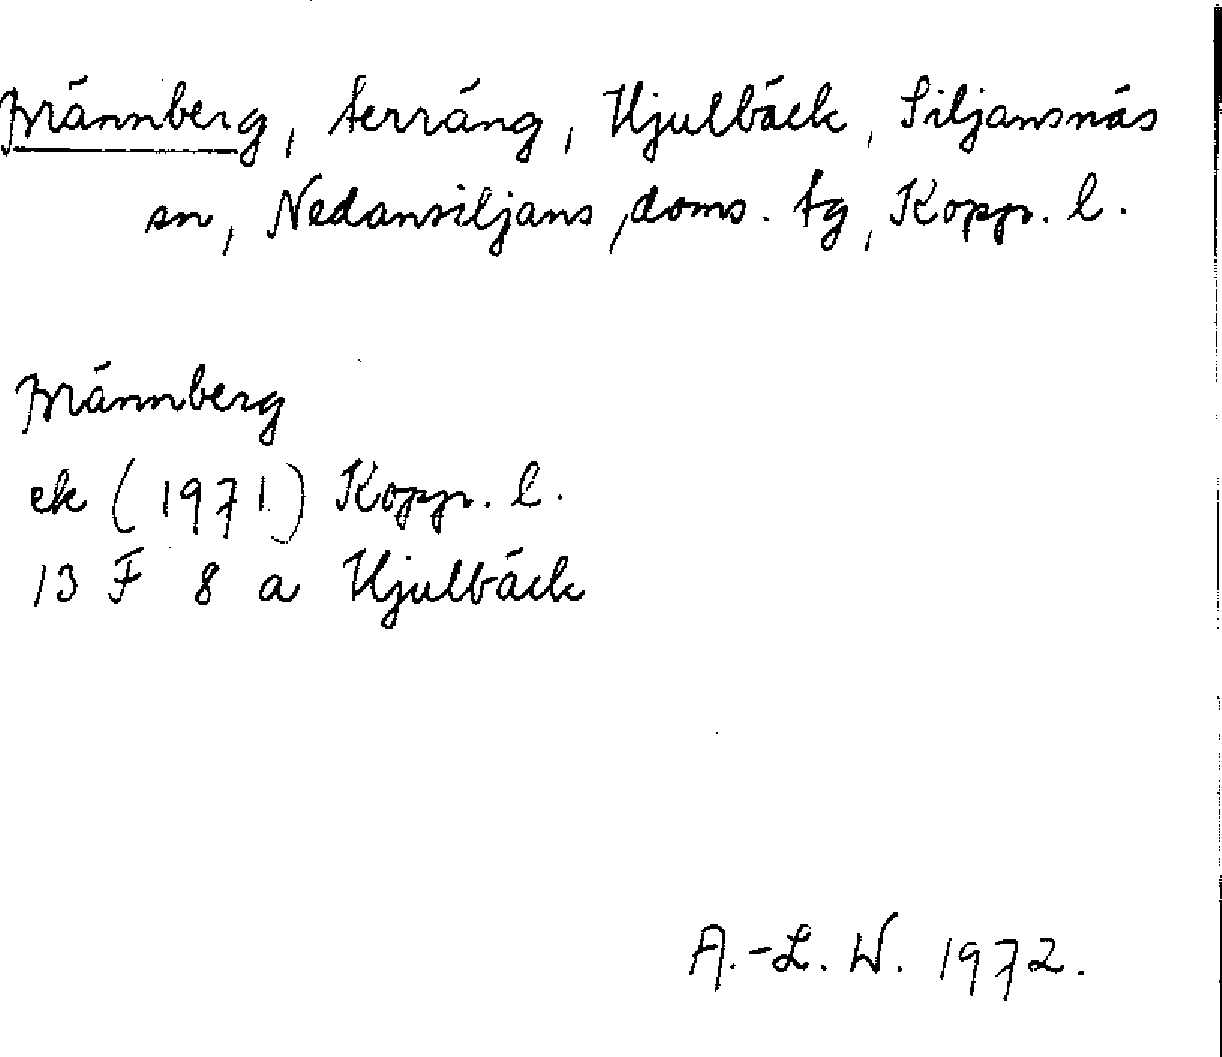 Brännberg, terräng, Hjulbäck, Siljansnäs
sn, Nedansiljans doms. tg, Kopp. l.
Brännberg
ek (1971) Kopp. l.
13 F 8 a Hjulbäck
A.-L. W. 1972.